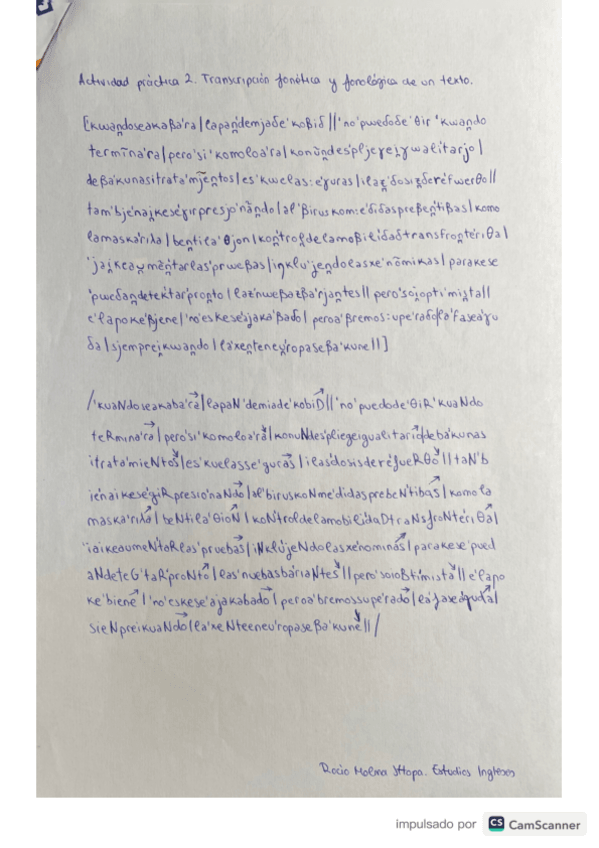 Actividad práctica 2. Transcripción fonética y fonológica de un texto.
[ˈkwan̪doseakaˈβaˈra | lapan̪ˈdemjaðeˈkoβið || ˈnoˈpweðoðeˈθirˈkwando
termĩnaˈra | peroˈsiˈkomoloaˈra | konũn̪desˈpljeɣeiɣwalitarjo |
deβaˈkunasitrataˈmjen̪tos | esˈkwelas:eˈɣuras | ilaz̪ˈdosizðereˈfwerθo ||
tamˈbjenajkeseˈɣirpresjoˈnãn̪do | alˈβiruskom:eˈðidaspreβen̪ˈtiβas | komo
lamaskaˈriʎa | ben̪tilaˈθjon | kon̪ˈtrol̪delamoβiliˈdaðtransfron̪teˈriθa |
ˈjajkeawmẽn̪ˈtarlasˈprweβas | iŋkluˈjen̪dolasxeˈnõmikas | parakese
ˈpweðan̪detekˈtarˈpron̪to | lazˈnweβazβaˈrjan̪tes || peroˈsojoptiˈmista ||
eˈlapokeˈβjene | ˈnoˈeskeseˈajakaˈβaðo | peroaˈβremos:upeˈraðolaˈfaseaˈɣu
ða | ˈsjemprejˈkwando | laˈxen̪teneu̯ˈropaseβaˈkune || ]
/ˈkuaNdoseakabaˈra | lapaNˈdemiadeˈkobiD || ˈnoˈpuedodeˈθiRˈkuaNdo
teRminaˈra | peroˈsiˈkomoloaˈra | konuNdesˈpliegeigualitario | debaˈkunas
itrataˈmieNtos | esˈkuelasseˈguras | ilasˈdosisdereˈfueRθo || taNˈb
ienaikeseˈgiRpresioˈnaNdo | alˈbiruskoNmeˈdidasprebeNˈtibas | komola
maskaˈriʎa | beNtilaˈθioN | koNˈtroldelamobiliˈdaDtraNsfroNteˈriθa |
ˈiaikeaumeNˈtaRlasˈpruebas | iNkluˈjeNdolasxeˈnominas | parakeseˈpued
aNdeteGˈtaRˈproNto | lasˈnuebasbaˈriaNtes || peroˈsoioBtiˈmista || eˈlapo
keˈbiene | ˈnoˈeskeseˈajakaˈbado | peroaˈbremossupeˈrado | laˈfaseaˈguda |
ˈsieNpreiˈkuaNdo | laˈxeNteeneuˈropasebaˈkune || /
Rocio Molina
Estudios Ingleses
impulsado por CS CamScanner